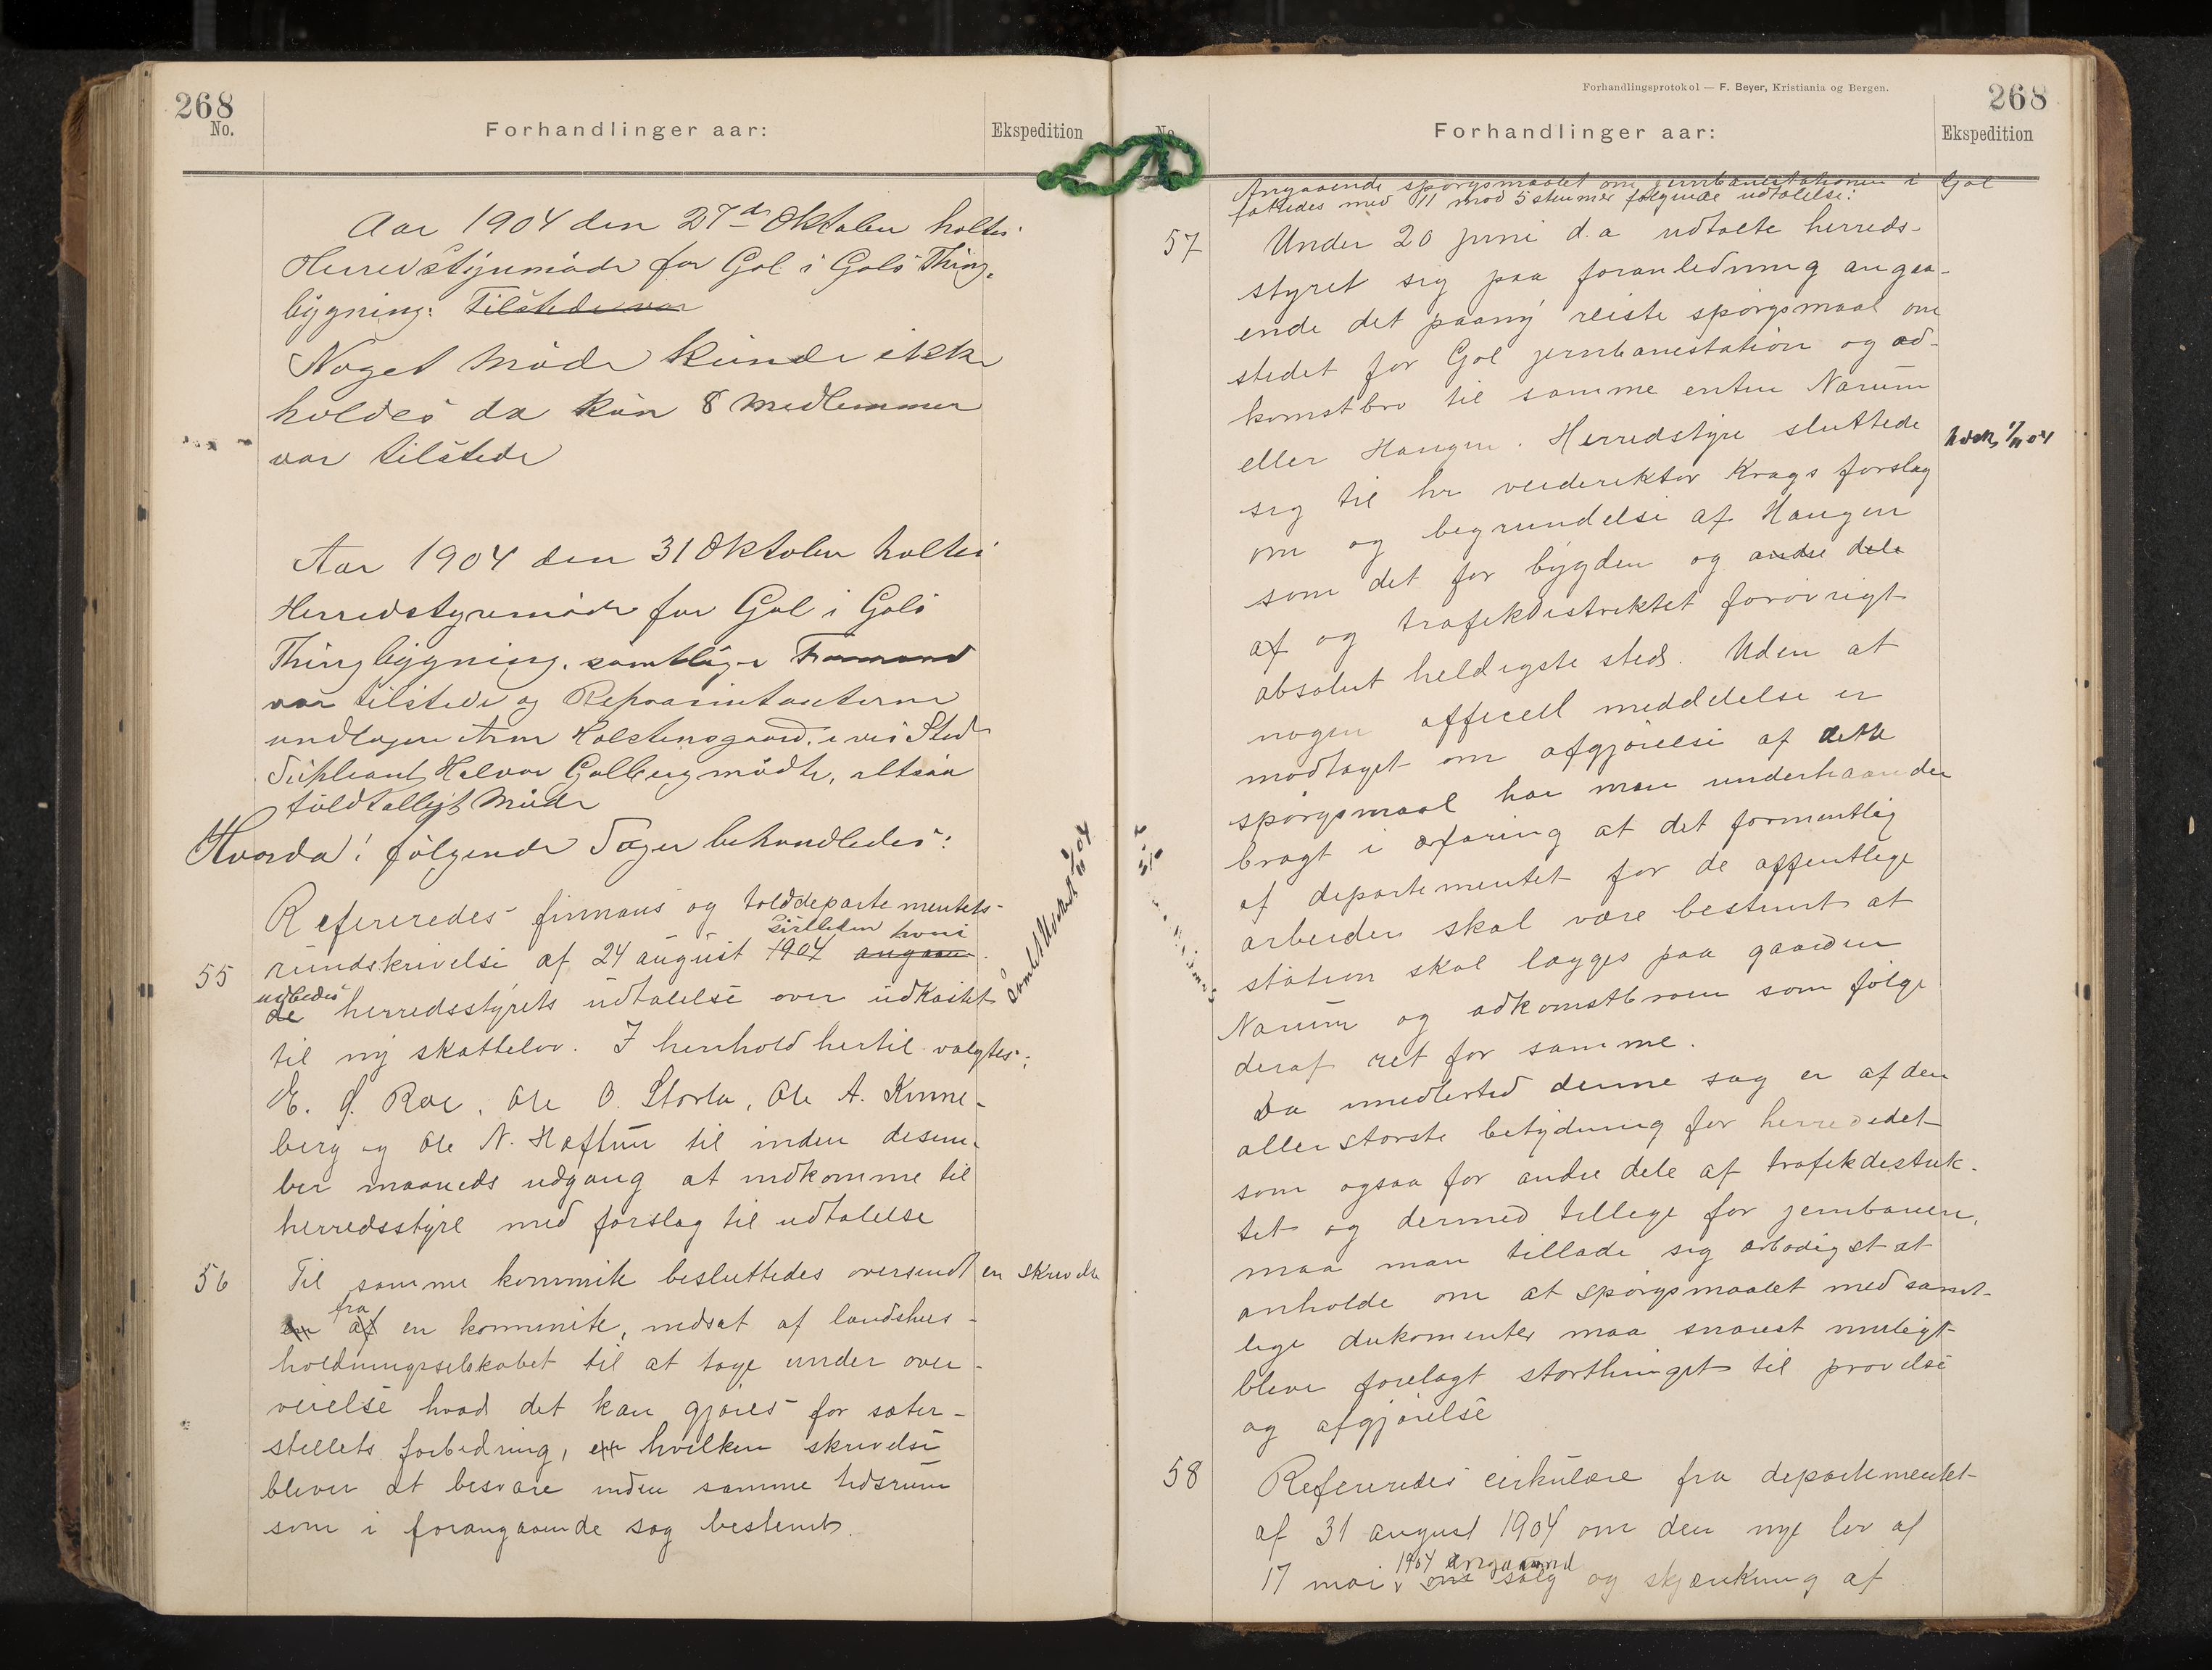 268
No.
Forhandlinger aar:
Ekspedition
Aar 1904 den 27de Oktober holtes
Herredstyremöde for Gol i Gols Thing-
bygning: Tilstede var
Noget Möde kunde ikke
holdes da kun 8 Medlemmer
var tilstede
Aar 1904 den 31 Oktober holtes
Herredstyremöde for Gol i Gols
Thingbygning. samtlige Formænd
var tilstede og Repræsintanterne
undtagen Arne Halstensgaard, i vis Sted
Supleant Halvor Golberg mödte, altsaa
fuldtalligt Möde
Hvorda! fölgende Sager behandledes:
Refereredes finnans og tolddepartementets
cirkulær hvori
55 rundskrivelse af 24 august 1904 angaaen
udbedes
de herredsstyrets udtalelse over udkastet
til ny skattelov. I henhold hertil valgtes:
E. G. Roe, Ole O. Storla, Ole A. Kinne-
berg og Ole N. Heftun til inden desem-
ber maaneds udgang at indkomme til
herredsstyre med forslag til udtalelse
56 Til samme kommite besluttedes oversendt en skrivelse
fra
en af en kommite, nedsat af landshus-
holdningsselskabet til at tage under over-
veielse hvad det kan gjöres for sæter-
stellets forbedring, en hvilken skrivelse
bliver at besvare inden samme tidsrum
som i forangaaende sag bestemt.
Forhandlingsprotokol — F. Beyer, Kristiania og Bergen.
268
No.
Forhandlinger aar:
Ekspedition
Angaaende spörgsmaalet om jernbanestationen i Gol
fattedes med 11 mod 5 stemmer fölgende udtalelse:
57 Under 20 juni d.a udtalte herreds-
styret sig paa foranledning angaa-
ende det paany reiste spörgsmaal om
stedet for Gol jernbanestation og ad-
komstbro til samme enten Narum
eller Haugen. Herredstyre sluttede
1/11 04
sig til hr veidirektör Krags forslag
om og begrundelse af Haugen
som det for bygden og andre dele
af og trafikdistriktet forövrigt
absolut heldigste sted. Uden at
nogen officell meddelelse er
modtaget om afgjörelse af dette
spörgsmaal har man underhaanden
bragt i erfaring at det formentlig
af departementet for de offentlige
arbeider skal være bestemt at
station skal lægges paa gaarden
Narum og adkomstbroen som fölge
deraf ret for samme.
Da imedlertid denne sag er af den
allerstörste betydning for herrededet
som ogsaa for andre dele af trafikdistrik-
tet og dermed tillige for jernbanen,
maa man tillade sig ærbödigst at
anholde om at spörgsmaalet med samt-
lige dukomenter maa snarest muligt
blive forelagt storthinget til prövelse
og afgjörelse
58 Refereredes cirkulære fra departementet
af 31 august 1904 om den nye lov af
1904 angaaend
17 mai om salg og skjænkning af